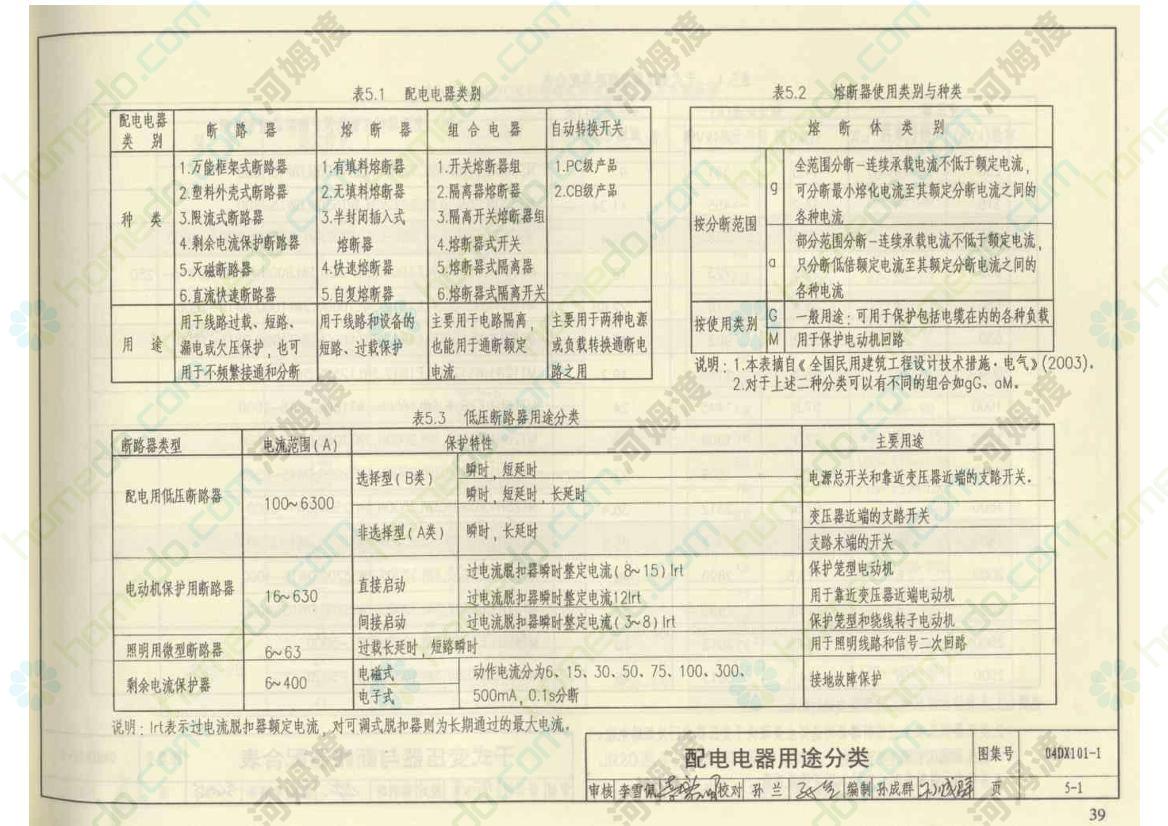 表5.1 配电电器类别
配电电器类别 断路器 熔断器 组合电器 自动转换开关
种类
1.万能框架式断路器
2.塑料外壳式断路器
3.限流式断路器
4.剩余电流保护断路器
5.灭磁断路器
6.直流快速断路器
1.有填料熔断器
2.无填料熔断器
3.半封闭插入式
熔断器
4.快速熔断器
5.自复熔断器
1.开关熔断器组
2.隔离器熔断器
3.隔离开关熔断器组
4.熔断器式开关
5.熔断器式隔离器
6.熔断器式隔离开关
1.PC级产品
2.CB级产品
用途
用于线路过载、短路、
漏电或欠压保护，也可
用于不频繁接通和分断
用于线路和设备的
短路、过载保护
主要用于电路隔离，
也能用于通断额定
电流
主要用于两种电源
或负载转换通断电
路之用
表5.2 熔断器使用类别与种类
熔断体类别
按分断范围
g
全范围分断—连续承载电流不低于额定电流，
可分断最小熔化电流至其额定分断电流之间的
各种电流
a
部分范围分断—连续承载电流不低于额定电流，
只分断低倍额定电流至其额定分断电流之间的
各种电流
按使用类别
G 一般用途：可用于保护包括电缆在内的各种负载
M 用于保护电动机回路
说明：1.本表摘自《全国民用建筑工程设计技术措施·电气》(2003)．
2.对于上述二种分类可以有不同的组合如gG、aM。
表5.3 低压断路器用途分类
断路器类型 电流范围(A) 保护特性 主要用途
配电用低压断路器 100~6300
选择型(B类) 瞬时，短延时
瞬时，短延时，长延时
电源总开关和靠近变压器近端的支路开关．
非选择型(A类) 瞬时，长延时
变压器近端的支路开关
支路末端的开关
电动机保护用断路器 16~630
直接启动 过电流脱扣器瞬时整定电流(8~15)Irt 保护笼型电动机
过电流脱扣器瞬时整定电流12Irt 用于靠近变压器近端电动机
间接启动 过电流脱扣器瞬时整定电流(3~8)Irt 保护笼型和绕线转子电动机
照明用微型断路器 6~63 过载长延时，短路瞬时 用于照明线路和信号二次回路
剩余电流保护器 6~400
电磁式
电子式
动作电流分为6、15、30、50、75、100、300、
500mA，0.1s分断
接地故障保护
说明：Irt表示过电流脱扣器额定电流，对可调式脱扣器则为长期通过的最大电流。
配电电器用途分类 图集号 04DX101-1
审核 李雪佩 校对 孙兰 编制 孙成群 页 5-1
39
河姆渡
homedo.com